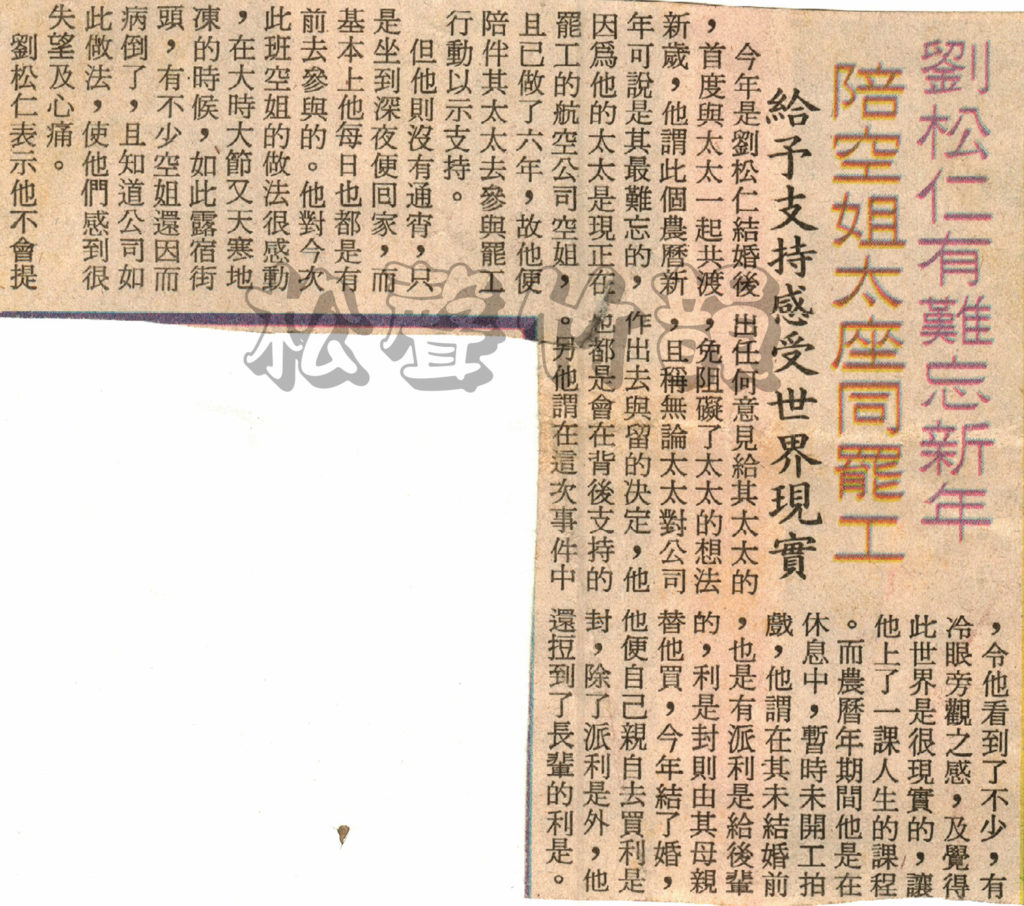 劉松仁有難忘新年
陪空姐太座同罷工
給予支持感受世界現實
今年是劉松仁結婚後
，首度與太太一起共渡
新歲，他謂此個農曆新
年可說是其最難忘的，
因爲他的太太是現正在
罷工的航空公司空姐，
且已做了六年，故他便
陪伴其太太去參與罷工
行動以示支持。
但他則沒有通宵，只
是坐到深夜便回家，而
基本上他每日也都是有
前去參與的。他對今次
此班空姐的做法很感動
，在大時大節又天寒地
凍的時候，如此露宿街
頭，有不少空姐還因而
病倒了，且知道公司如
此做法，使他們感到很
失望及心痛。
劉松仁表示他不會提
出任何意見給其太太的
，免阻礙了太太的想法
，且稱無論太太對公司
作出去與留的決定，他
也都是會在背後支持的
。另他謂在這次事件中
，令他看到了不少，有
冷眼旁觀之感，及覺得
此世界是很現實的，讓
他上了一課人生的課程
。而農曆年期間他是在
休息中，暫時未開工拍
戲，他謂在其未結婚前
，也是有派利是給後輩
的，利是封則由其母親
替他買，今年結了婚，
他便自己親自去買利是
封，除了派利是外，他
還挋到了長輩的利是。
松聲竹韻